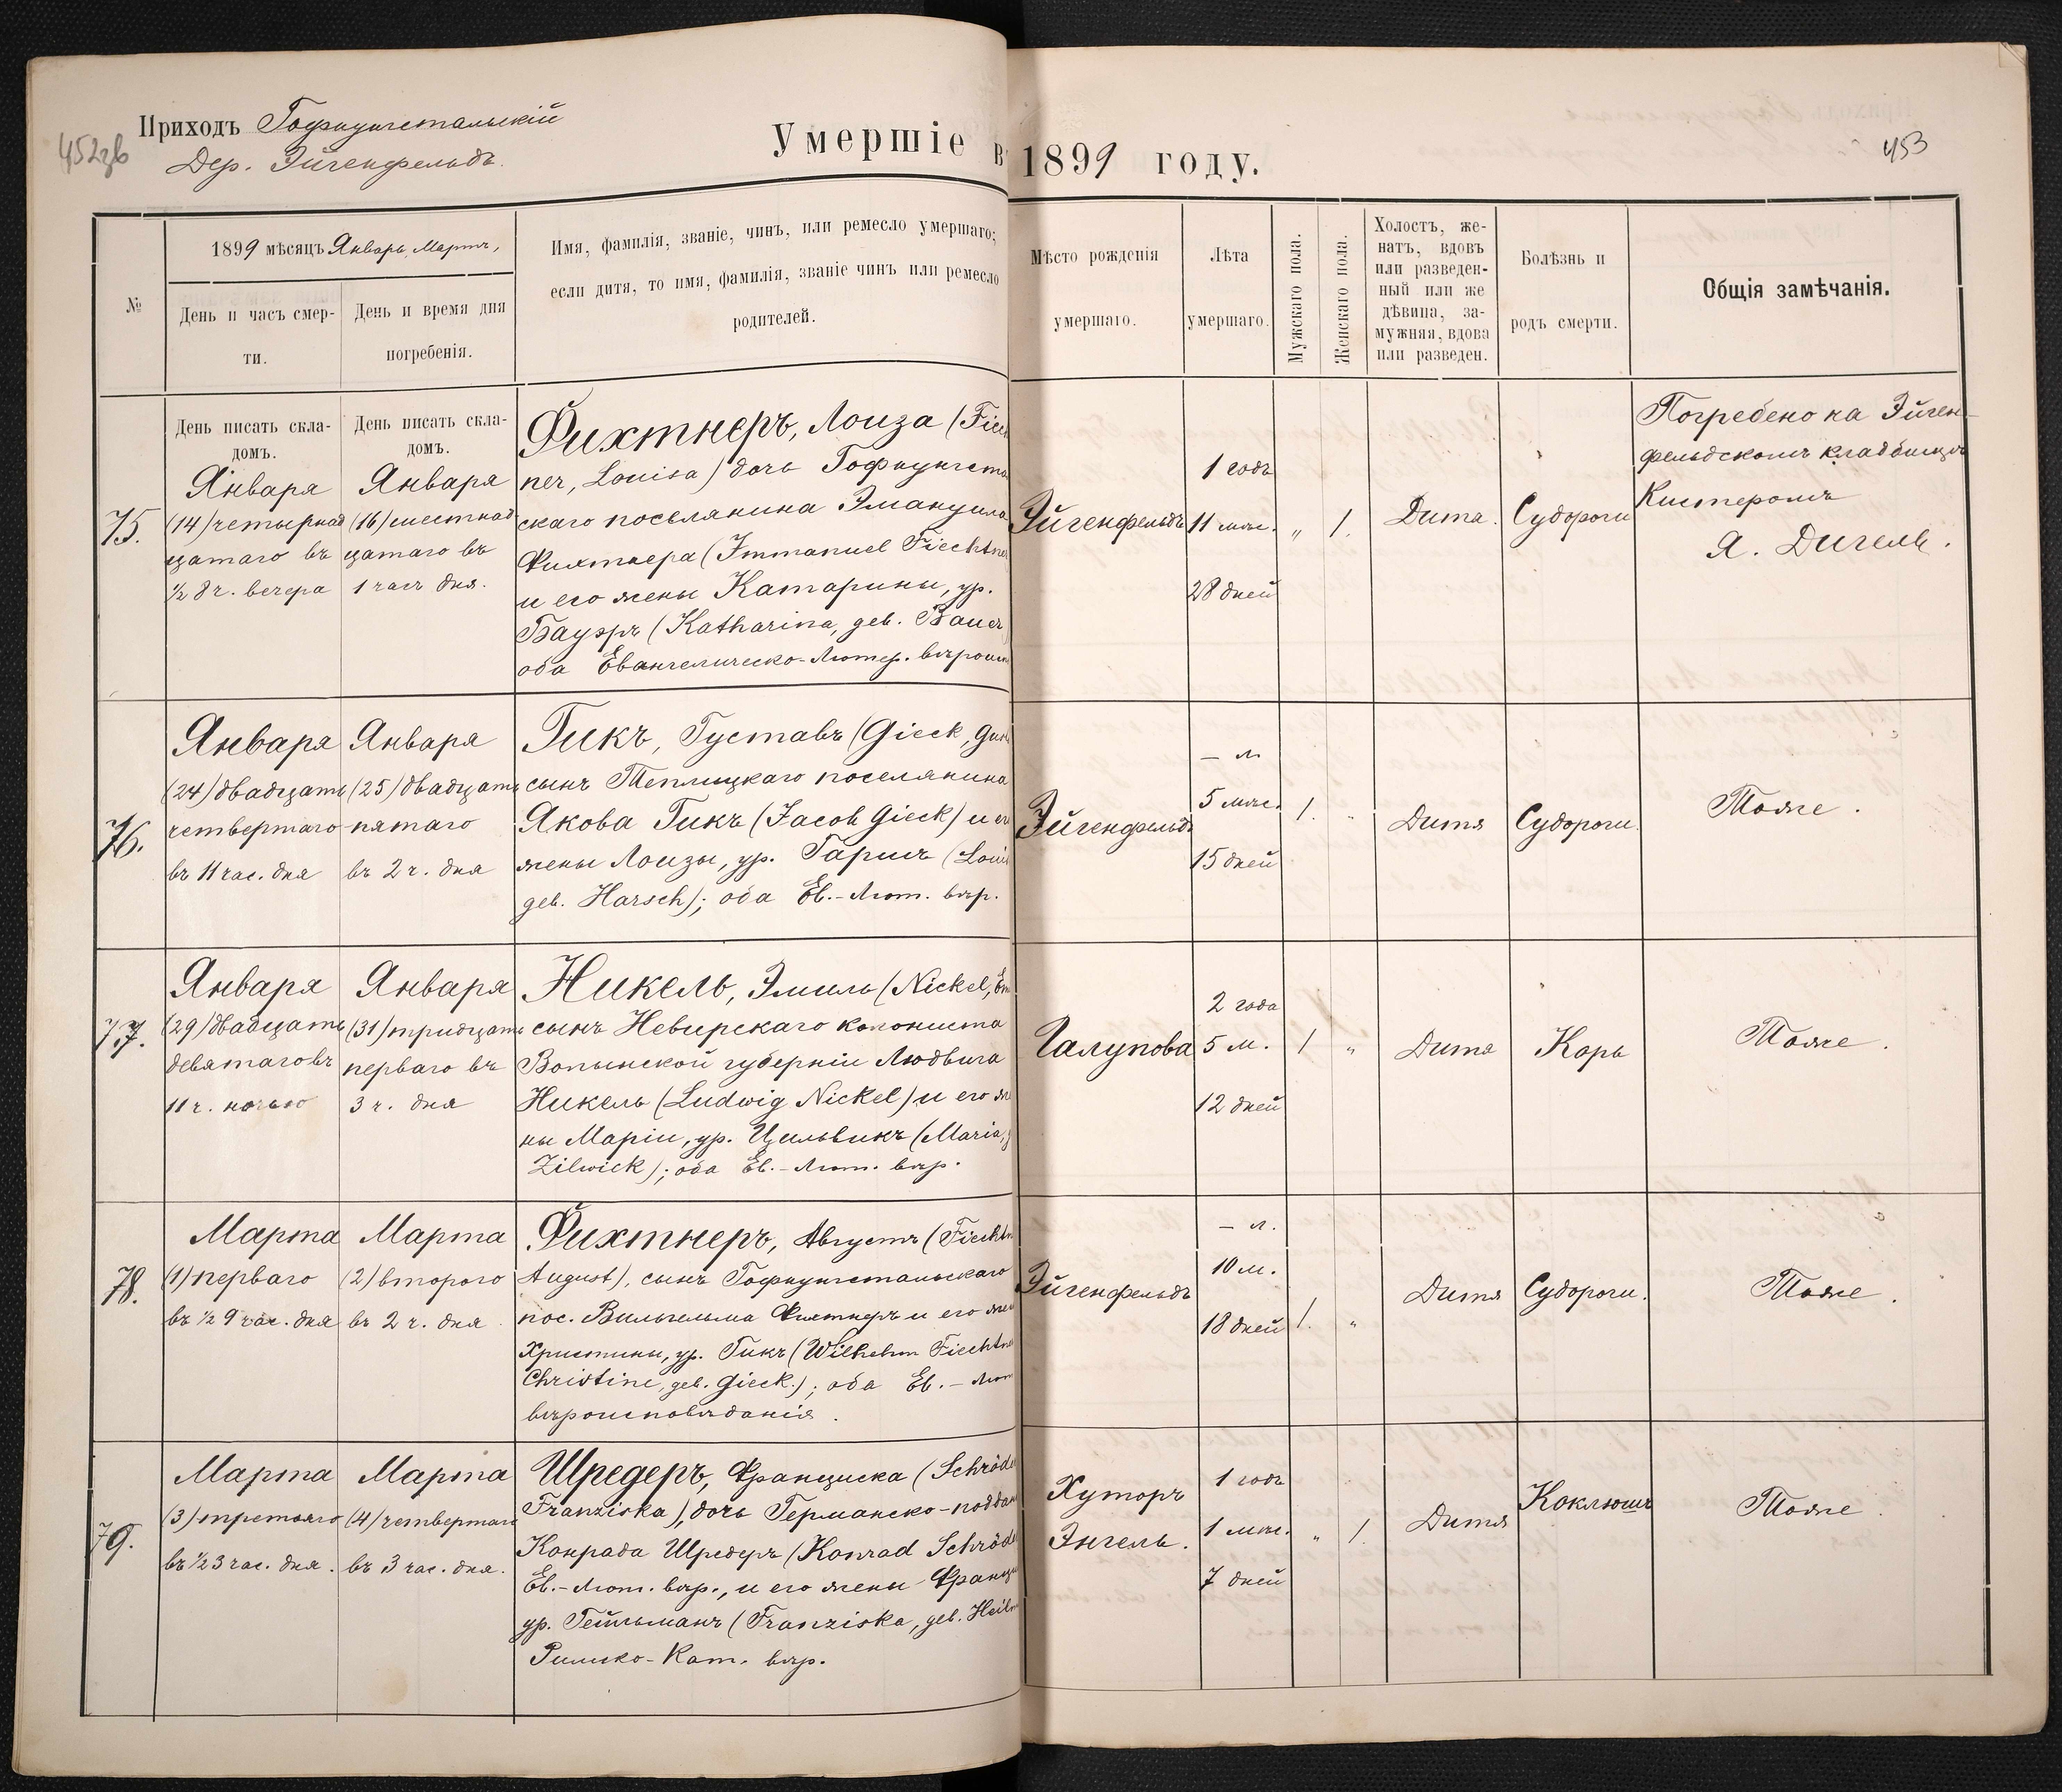 Приходъ Гофнунгстальскій
Дер. Эйгенфельдъ.
Умершіе въ 1899 году.
453
№
1899 мѣсяцъ Январь, Мартъ,
День и часъ смер-
ти.
День и время дня
погребенія.
Имя, фамилія, званіе, чинъ, или ремесло умершаго;
если дитя, то имя, фамилія, званіе чинъ или ремесло
родителей.
Мѣсто рожденія
умершаго.
Лѣта
умершаго.
Мужскаго пола.
Женскаго пола.
Холостъ, же-
натъ, вдовъ
или разведен-
ный или же
дѣвица, за-
мужняя, вдова
или разведен.
Болѣзнь и
родъ смерти.
Общія замѣчанія.
75.
День писать скла-
домъ.
Января
(14) четырнад
цатаго въ
½ 8 ч. вечера
День писать скла-
домъ.
Января
(16) шестнад
цатаго въ
1 часъ дня.
Фихтнеръ, Лоиза (Fiech
ner, Louisa) дочь Гофнунгста
скаго поселянина Эмануила
Фихтнера (Immanuel Fiechtne
и его жены Катарины, ур.
Бауэръ (Katharina, geb. Bauer
оба Евангелическо-Лютер. вѣроисп
Эйгенфельдъ
1 годъ
11 мѣс.
28 дней
„
1.
Дитя.
Судороги
Погребено на Эйген-
фельдскомъ кладбищѣ
Кистеромъ
Я. Дигель.
76.
Января
(24) двадцать
четвертаго
въ 11 час. дня
Января
(25) двадцать
пятаго
въ 2 ч. дня
Гикъ, Густавъ (Gieck, Gus
сынъ Теплицкаго поселянина
Якова Гикъ (Jacob Gieck) и ег
жены Лоизы, ур. Гаршъ (Loui
geb. Harsch); оба Ев.-Лют. вѣр.
Эйгенфельдъ
— л.
5 мѣс.
15 дней
1.
„
Дитя
Судороги.
Тоже.
77.
Января
(29) двадцать
девятаго въ
11 ч. ночью
Января
(31) тридцать
перваго въ
3 ч. дня
Никель, Эмиль (Nickel, Em
сынъ Невирскаго колониста
Волынской губерніи Людвига
Никель (Ludwig Nickel) и его же
ны Маріи, ур. Цильвикъ (Maria, g
Zilwick); оба Ев.-Лют. вѣр.
Галупова
2 года
5 м.
12 дней
1
„
Дитя
Корь
Тоже.
78.
Марта
(1) перваго
въ ½ 9 час. дня
Марта
(2) второго
въ 2 ч. дня.
Фихтнеръ, Августъ (Fiechtn
August), сынъ Гофнунгстальскаго
пос. Вильгельма Фихтнеръ и его жен
Христины, ур. Гикъ (Wilhelm Fiechtne
Christine, geb. Gieck.); оба Ев.-Лют
вѣроисповѣданія.
Эйгенфельдъ
— л.
10 м.
18 дней
1.
„
Дитя
Судороги.
Тоже.
79.
Марта
(3) третьяго
въ ½ 3 час. дня.
Марта
(4) четвертаго
въ 3 час. дня.
Шредеръ, Франциска (Schröde
Franziska), дочь Германско-поддан
Конрада Шредеръ (Konrad Schröde
Ев.-Лют. вѣр., и его жены Франци
ур. Гейльманъ (Franziska, geb. Heilm
Римско-Кат. вѣр.
Хуторъ
Энгель.
1 годъ
1 мѣс.
7 дней
„
1.
Дитя
Коклюшъ
Тоже.